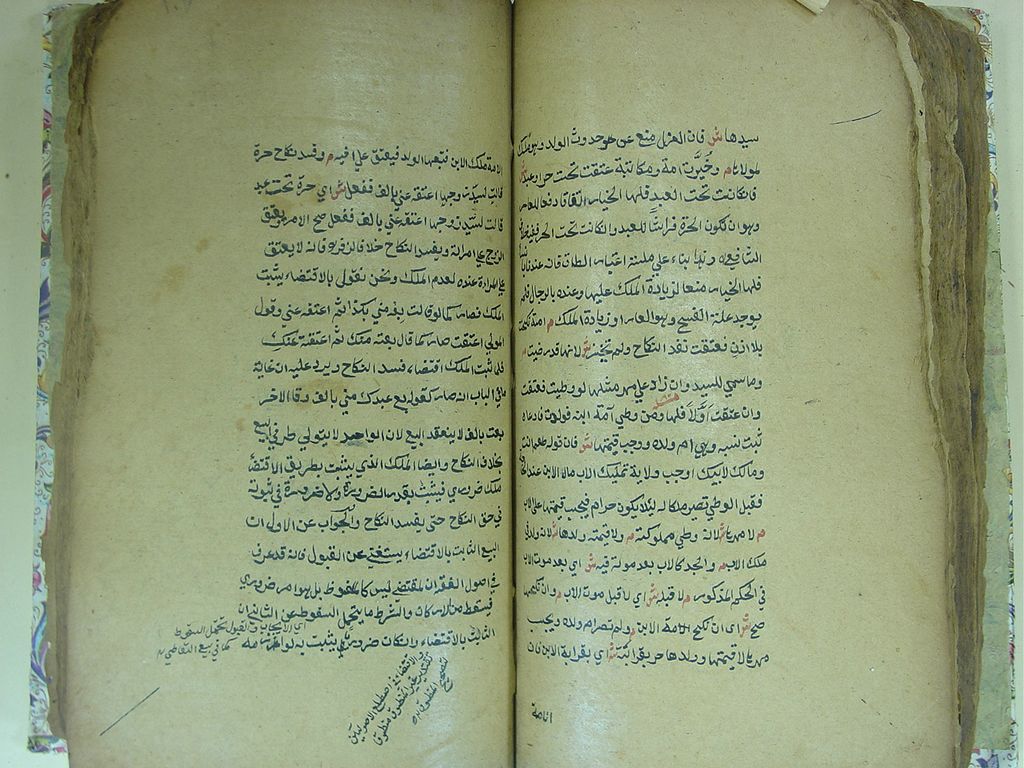 سيدها ش فان العزل منع عن حدوث الولد وهو ملك
لمولاه م وخيرت امة ومكاتبة عتقت تحت حر او عبد ش
فان كانت تحت العبد فلها الخيار اتفاقا دفعا للعار
وهو ان تكون الحرة فراشا للعبد وان كانت تحت الحر ففيه خلاف
الشافعي وهذا بناء على مسئلة اعتبار الطلاق فانه عندنا بالنساء
فلها الخيار منعا لزيادة الملك عليها وعنده بالرجال فلم
يوجد علة الفسخ وهو العار او زيادة الملك م امة نكحت
بلا اذن فعتقت نفذ النكاح ولم تخير ش لانها قد رضيت م
وما سمي للسيد وان زاد على مهر مثلها لو وطئت فعتقت
وان عتقت اولا فلها ومن وطي امة ابنه فولدت فادعاه
ثبت نسبه وهي ام ولده ووجب قيمتها ش فان قوله عليه السلام انت
ومالك لابيك اوجب ولاية تملك الاب مال الابن عند الحاجة
فقبل الوطي تصير ملكا له لئلا يكون حرام فيجب قيمتها على الاب
م لا مهرها ش لانه وطي مملوكته م ولا قيمة ولدها ش لانه ولد في
ملك الاب م والجد كالاب بعد موته فيه ش اي بعد موت الاب
في الحكم المذكور م لا قبله ش اي لا قبل موت الاب م وان نكحها
صح ش اي ان نكح الاب امة الابن م ولم تصر ام ولده ويجب
مهرها لا قيمتها وولدها حر بقرابته ش اي بقرابة الابن فان
الامة
الامة ملك الابن فتبعها الولد فيعتق على اخيه م وفسد نكاح حرة
قالت لسيد زوجها اعتقه عني بالف ففعل ش اي حرة تحت عبد
قالت لسيد زوجها اعتقه عني بالف ففعل صح الامر ويعتق
الزوج على امراته ويفسد النكاح خلافا لزفر فانه لا يعتق
على المراة عنده لعدم الملك ونحن نقول بالاقتضاء يثبت
الملك فصار كما لو قالت بعه مني بكذا ثم اعتقه عني وقول
المولى اعتقت صار كما قال بعته منك ثم اعتقته عنك
فلما ثبت الملك اقتضاء فسد النكاح ويرد عليه ان غاية
ما في الباب انه صار كقوله بع عبدك مني بالف وقال الاخر
بعت بالف لا ينعقد البيع لان الواحد لا يتولى طرفي البيع
بخلاف النكاح وايضا الملك الذي يثبت بطريق الاقتضاء
ملك ضروري فيثبت بقدر الضرورة ولا ضرورة في ثبوته
في حق النكاح حتى يفسد النكاح والجواب عن الاول ان
البيع الثابت بالاقتضاء يستغني عن القبول فانه قد عرف
في اصول الفقه ان المقتضى ليس كالملفوظ بل هو امر ضروري
فسقط من الاركان والشرط ما يحتمل السقوط عن الثاني ان
الثابت بالاقتضاء وان كان ضروريا يثبت به لوازمه
اي الايجاب والقبول يحتمل السقوط
كما في بيع التعاطي